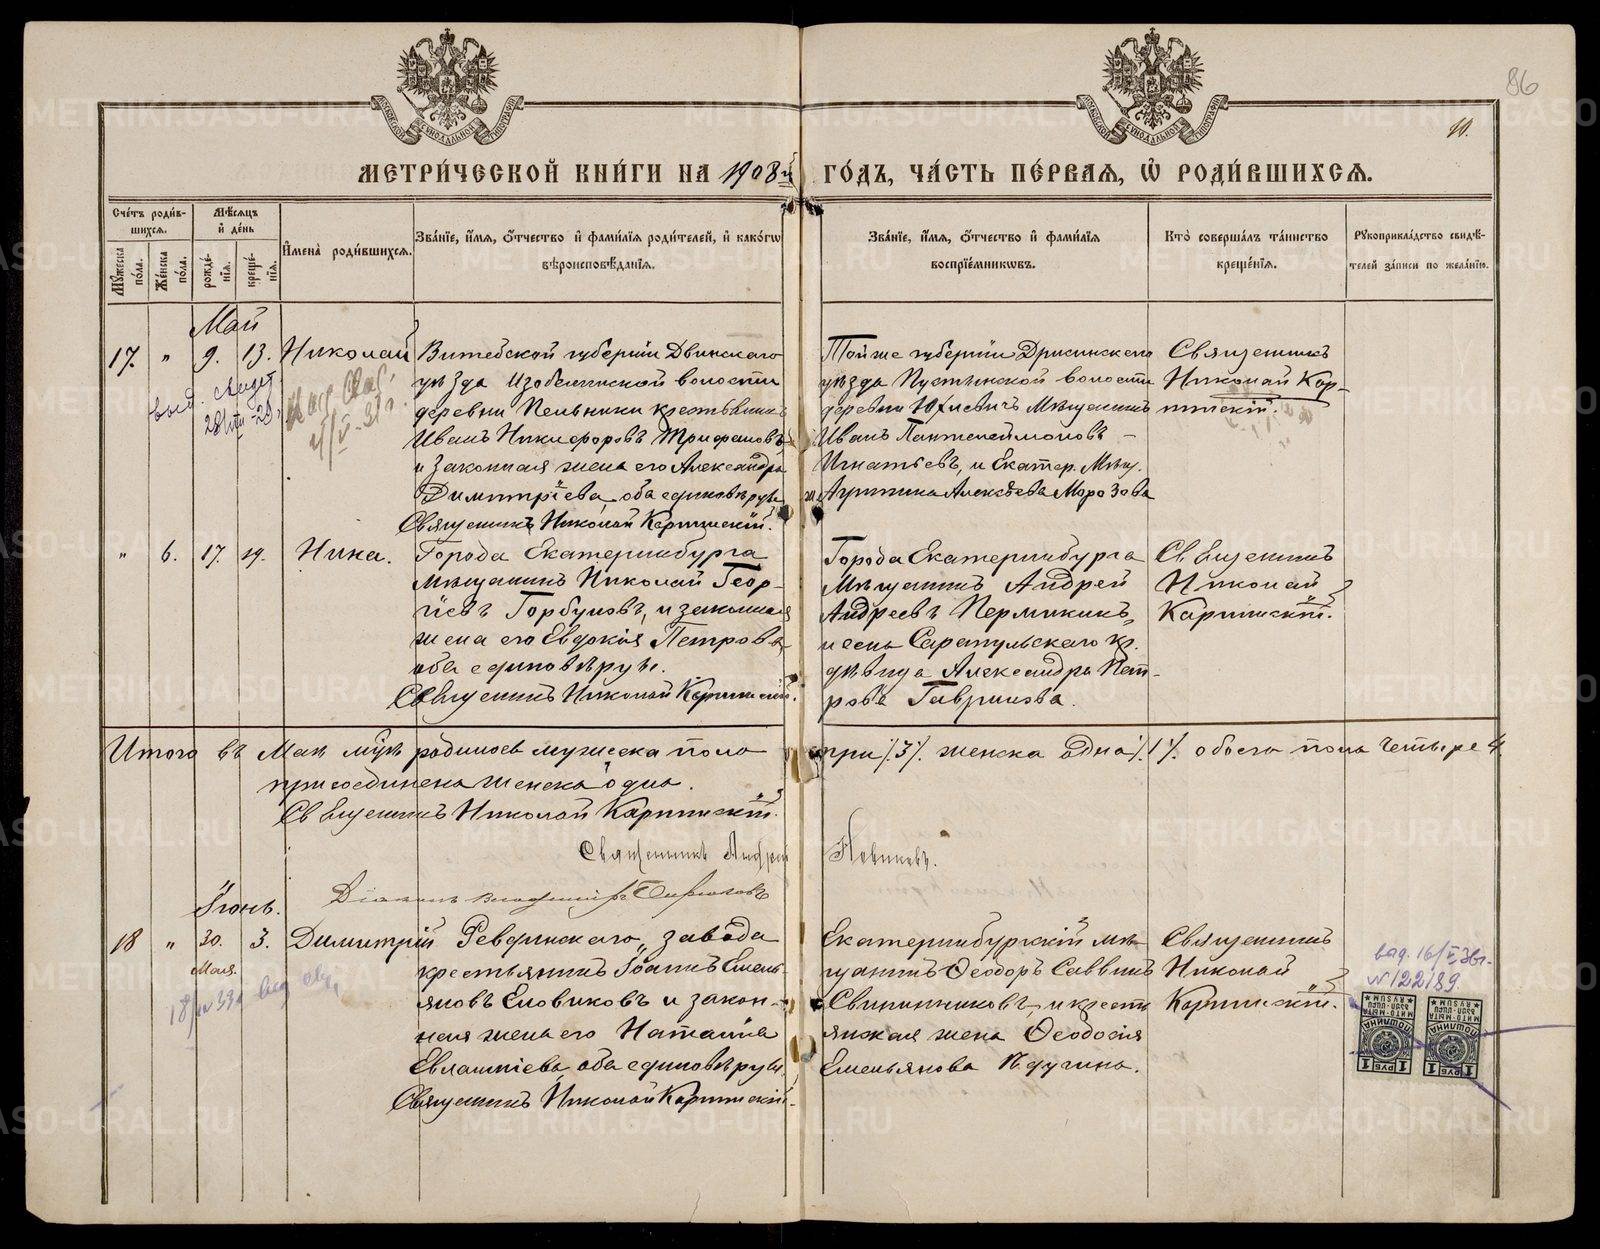 86
10.
МЕТРИ́ЧЕСКОЙ КНИ́ГИ НА 1908й ГО́ДЪ, ЧА́СТЬ ПЕ́РВАЯ, Ѡ҆ РОДИ́ВШИХСЯ.
Сче́тъ роди́в-
шихся.
Мѣ́сяцъ
и҆ де́нь
Му́жеска по́ла.
Же́нска по́ла.
рожде́-нїя.
креще́-нїя.
И҆мена̀ роди́вшихся.
Зва́нїе, и҆́мя, ѻ҆́тчество и҆ фами́лїя роди́телей, и҆ како́гѡ
вѣроисповѣ́данїя.
Зва́нїе, и҆́мя, ѻ҆́тчество и҆ фами́лїя
воспрїе́мникѡвъ.
Кто̀ соверша́лъ та́инство
креще́нїя.
Рукоприкла́дство свидѣ́-
телей за́писи по жела́нїю.
Май
17. " 9. 13. Николай
Витебской губернiи Двинскаго
уѣзда Изабелинской волости
деревни Пельники крестьянинъ
Иванъ Никифоровъ Трифановъ
и законная жена его Александра
Димитрiева, оба единовѣрцы
Священникъ Николай Карпинскiй.
Той же губернiи Дрисинскаго
уѣзда Пустынской волости
деревни Юхневичъ Мѣщанинъ
Иванъ Пантелеймоновъ
Игнатьевъ, и Екатер. Мѣщ.
Агрипина Алексѣева Морозова
Священникъ
Николай Кар-
пинскiй.
" 6. 17. 19. Нина.
Города Екатеринбурга
Мѣщанинъ Николай Геор-
гiевъ Горбуновъ, и законная
жена его Евдокiя Петрова,
оба единовѣрцы.
Священникъ Николай Карпинскiй.
Города Екатеринбурга
Мѣщанинъ Андрей
Андреевъ Пермикинъ,
и села Сарапульскаго кр.
дѣвица Александра Пет-
рова Гаврилова.
Священникъ
Николай
Карпинскiй.
Итого въ Маѣ мцѣ родилось мужеска пола три /.3/. женска одна /.1/. обоего пола четыре 4.
присоединена женска одна.
Священникъ Николай Карпинскiй.
Священникъ Андрей Новиковъ.
Дiаконъ Владимiръ Бирюковъ
Iюнь.
18 " 30. 3. Димитрiй
Мая.
Ревдинскаго завода
крестьянинъ Iоаннъ Емель-
яновъ Еловиковъ и закон-
ная жена его Наталiя
Евлампiева, оба единовѣрцы.
Священникъ Николай Карпинскiй.
Екатеринбургскiй мѣ-
щанинъ Ѳеодоръ Саввинъ
Свининниковъ, и крестьянская жена Ѳеодосiя
Емельянова
Священникъ
Николай
Карпинскiй.
N 122189.
ПОШЛИНА
1 РУБ 1
ПОШЛИНА
1 РУБ 1
METRIKI.GASO-URAL.RU